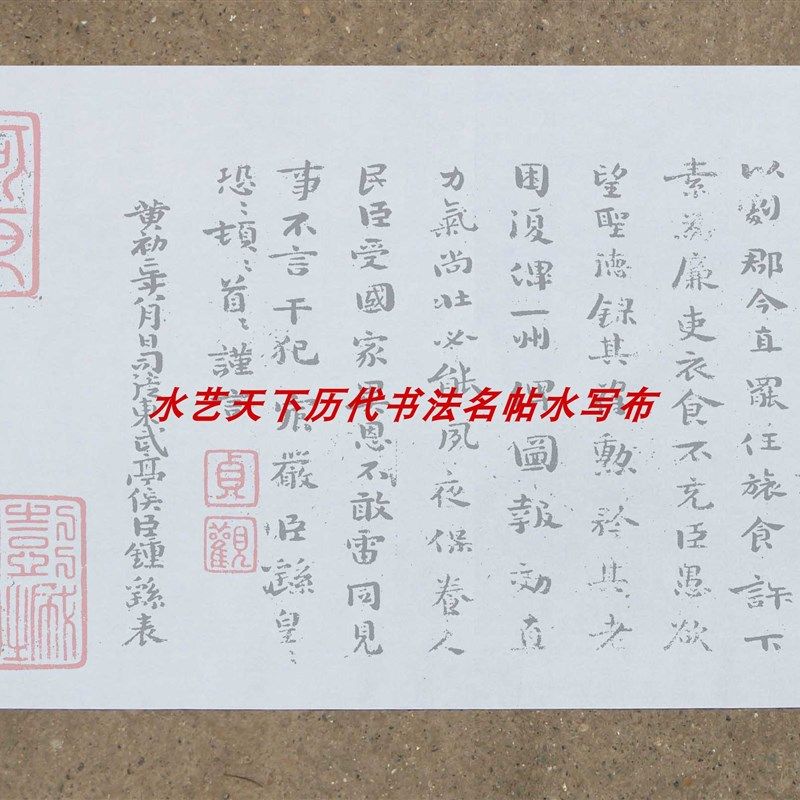 以劇郡今直罷任旅食許下
素為廉吏衣食不充臣愚欲
望聖德錄其舊勳矜其老
困復俾一州俾圖報効直
力氣尚壯必能夙夜保養人
民臣受國家異恩不敢雷同見
事不言干犯宸嚴臣繇皇〻
恐〻頓〻首〻謹言
黄初二年八月日司徒東武亭侯臣鍾繇表
貞觀
水艺天下历代书法名帖水写布